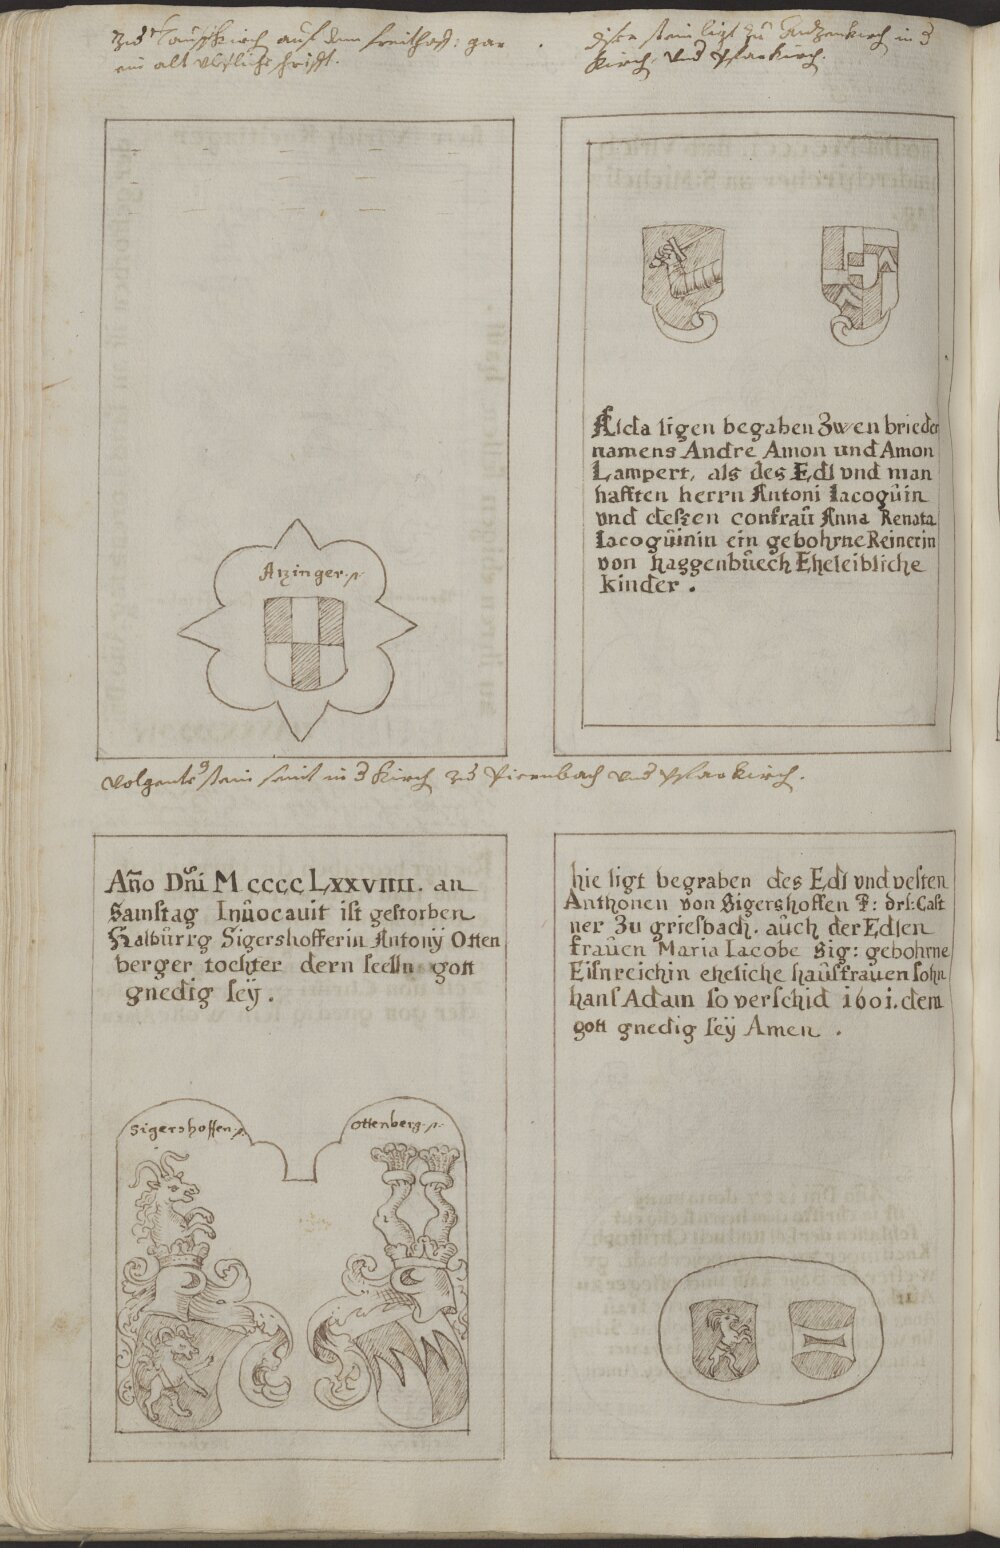 Zu Tauffkirch auf dem freithoff: gar
ein alt
diser stein ligt zu in d
kirch, und Pfarkirch.
Atzinger.
Alda ligen begaben Zwen brieder
namens Andre Amon und Amon
Lampert, als des Edl vnd man
hafften herrn Antoni Iacogůin
vnd deszen confraů Anna Renata
Iacogůinin ein gebohrne Reinerin
von haggenbůech Eheleibliche
kinder.
volgente stain seint in d kirch zu Pirnbach und Pfarkirch.
Año Dñi M CCCC LXXVIIII. an
Samstag Inůocauit ist gestorben
Halbůrrg Sigershofferin Antonÿ Otten
berger tochter dern seelln gott
gnedig seÿ.
Sigershoffen.
Ottenberg.
hie ligt begraben des Edl vnd vesten
Anthonen von Sigershoffen F: drl: Cast
ner Zu griesbach. aůch der Edlen
fraůen Maria Iacobe Sig: gebohrne
Eisnreichin eheliche haůsfraůen sohn
hans Adam so verschid 1601. dem
gott gnedig seÿ Amen.